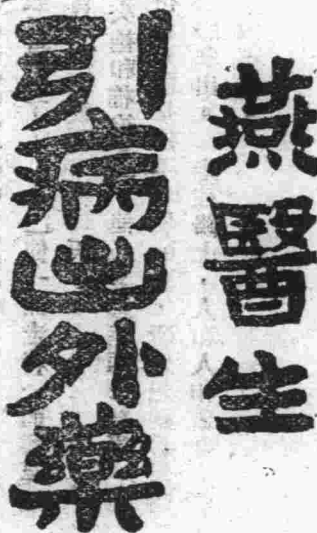 燕醫生
引病出外藥